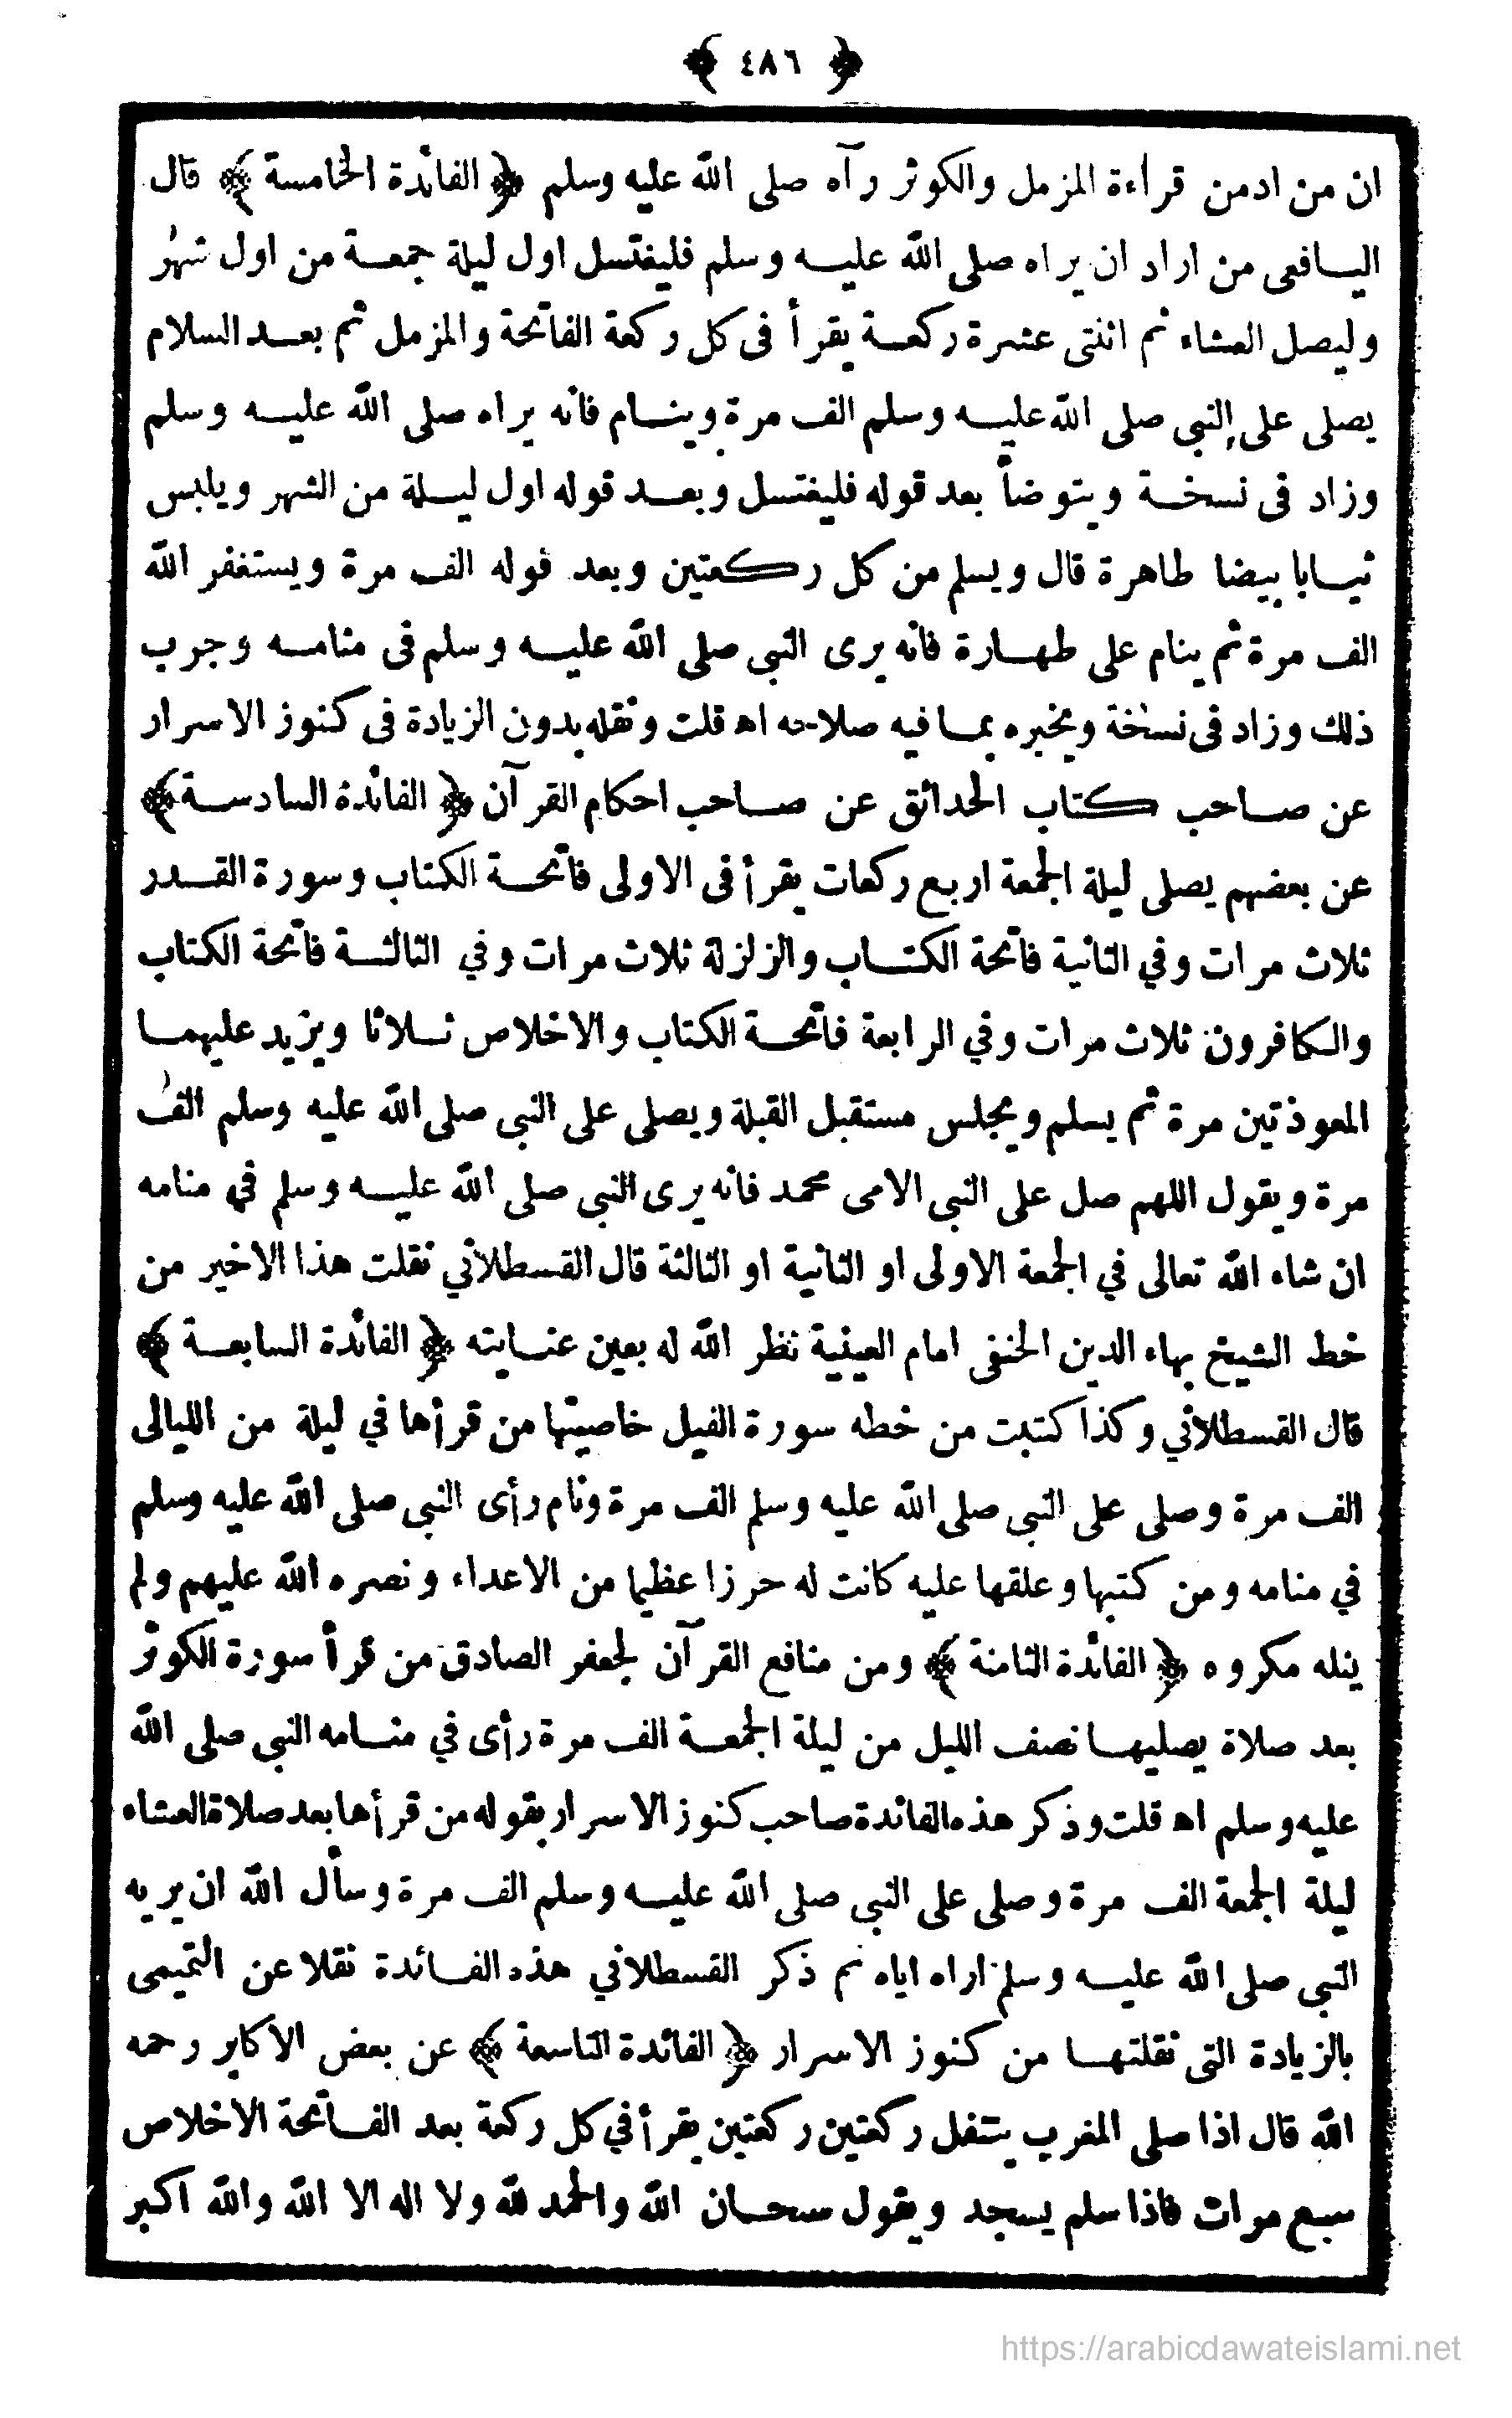 ﴿ ٤٨٦ ﴾
ان من ادمن قراءة المزمل والكوثر رآه صلى الله عليه وسلم ﴿ الفائدة الخامسة ﴾ قال
اليافعى من اراد ان يراه صلى الله عليه وسلم فليغتسل اول ليلة جمعة من اول شهر
وليصل العشاء ثم اثنتى عشرة ركعة يقرأ فى كل ركعة الفاتحة والمزمل ثم بعد السلام
يصلى على النبى صلى الله عليه وسلم الف مرة وينام فانه يراه صلى الله عليه وسلم
وزاد فى نسخة ويتوضأ بعد قوله فليغتسل وبعد قوله اول ليلة من الشهر ويلبس
ثيابا بيضا طاهرة قال ويسلم من كل ركعتين وبعد قوله الف مرة ويستغفر الله
الف مرة ثم ينام على طهارة فانه يرى النبى صلى الله عليه وسلم فى منامه وجرب
ذلك وزاد فى نسخة ويخبره بما فيه صلاحه اه قلت ونقله بدون الزيادة فى كنوز الاسرار
عن صاحب كتاب الحدائق عن صاحب احكام القرآن ﴿ الفائدة السادسة ﴾
عن بعضهم يصلى ليلة الجمعة اربع ركعات يقرأ فى الاولى فاتحة الكتاب وسورة القدر
ثلاث مرات وفي الثانية فاتحة الكتاب والزلزلة ثلاث مرات وفي الثالثة فاتحة الكتاب
والكافرون ثلاث مرات وفي الرابعة فاتحة الكتاب والاخلاص ثلاثا ويزيد عليهما
المعوذتين مرة ثم يسلم ويجلس مستقبل القبلة ويصلى على النبى صلى الله عليه وسلم الف
مرة ويقول اللهم صل على النبى الامى محمد فانه يرى النبى صلى الله عليه وسلم في منامه
ان شاء الله تعالى في الجمعة الاولى او الثانية او الثالثة قال القسطلانى نقلت هذا الاخير من
خط الشيخ بهاء الدين الحنفى امام العينية نظر الله له بعين عنايته ﴿ الفائدة السابعة ﴾
قال القسطلانى وكذا كتبت من خطه سورة الفيل خاصيتها من قرأها في ليلة من الليالى
الف مرة وصلى على النبى صلى الله عليه وسلم الف مرة ونام رأى النبى صلى الله عليه وسلم
في منامه ومن كتبها وعلقها عليه كانت له حرزا عظيما من الاعداء ونصره الله عليهم ولم
ينله مكروه ﴿ الفائدة الثامنة ﴾ ومن منافع القرآن لجعفر الصادق من قرأ سورة الكوثر
بعد صلاة يصليها نصف الليل من ليلة الجمعة الف مرة رأى في منامه النبى صلى الله
عليه وسلم اه قلت وذكر هذه الفائدة صاحب كنوز الاسرار بقوله من قرأها بعد صلاة العشاء
ليلة الجمعة الف مرة وصلى على النبى صلى الله عليه وسلم الف مرة وسأل الله ان يريه
النبى صلى الله عليه وسلم اراه اياه ثم ذكر القسطلاني هذه الفائدة نقلا عن التميمى
بالزيادة التى نقلتها من كنوز الاسرار ﴿ الفائدة التاسعة ﴾ عن بعض الاكابر رحمه
الله قال اذا صلى المغرب يتنفل ركعتين ركعتين يقرأ في كل ركعة بعد الفاتحة الاخلاص
سبع مرات فاذا سلم يسجد ويقول سبحان الله والحمد لله ولا اله الا الله والله اكبر
https://arabicdawateislami.net